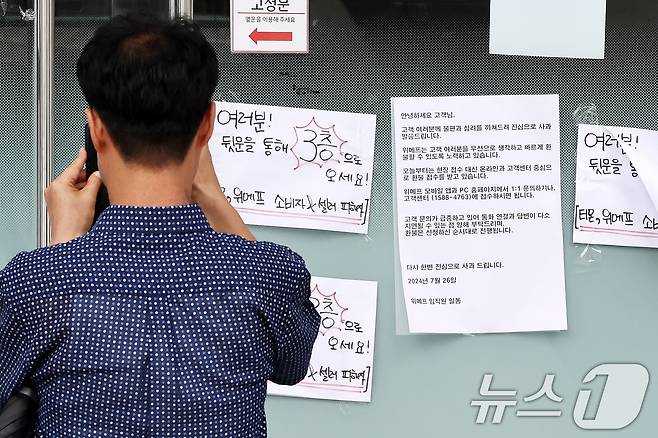 고정문
옆문을 이용해 주세요
여러분!
뒷문을 통해
3층으로
오세요!
, 위메프 소비자 X 셀러 피해자]
안녕하세요 고객님.
고객 여러분께 불편과 심려를 끼쳐드려 진심으로 사과
말씀드립니다.
위메프는 고객 여러분을 우선으로 생각하고 빠르게 환
불할 수 있도록 노력하고 있습니다.
오늘부터는 현장 접수 대신 온라인과 고객센터 중심으
로 환불 접수를 받고 있습니다.
위메프 모바일 앱과 PC 홈페이지에서 1:1 문의하기나,
고객센터 (1588-4763)에 접수하시면 됩니다.
고객 문의가 급증하고 있어 통화 연결과 답변이 다소
지연될 수 있는 점 양해 부탁드리며
환불은 신청하신 순서대로 진행됩니다.
다시 한번 진심으로 사과 드립니다.
2024년 7월 26일
위메프 임직원 일동
여러분!
뒷문을 통
[티몬, 위메프 소비
3층으로
오세요!
X 셀러 피해자]
뉴스1